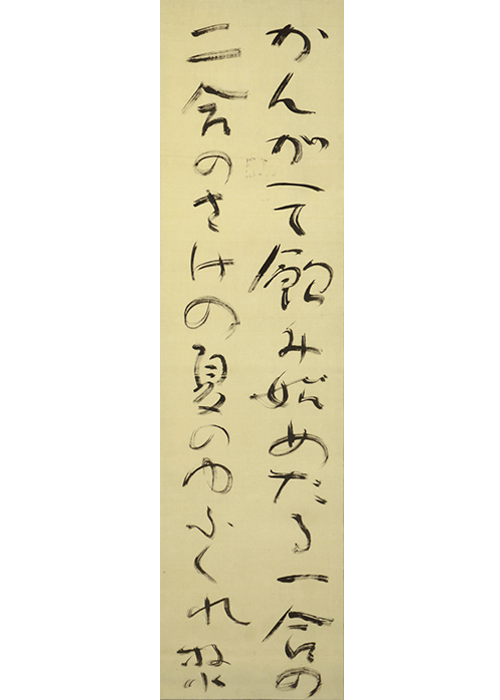 かんがへて飲み始めたる一合の
二合のさけの夏のゆふくれ 牧水